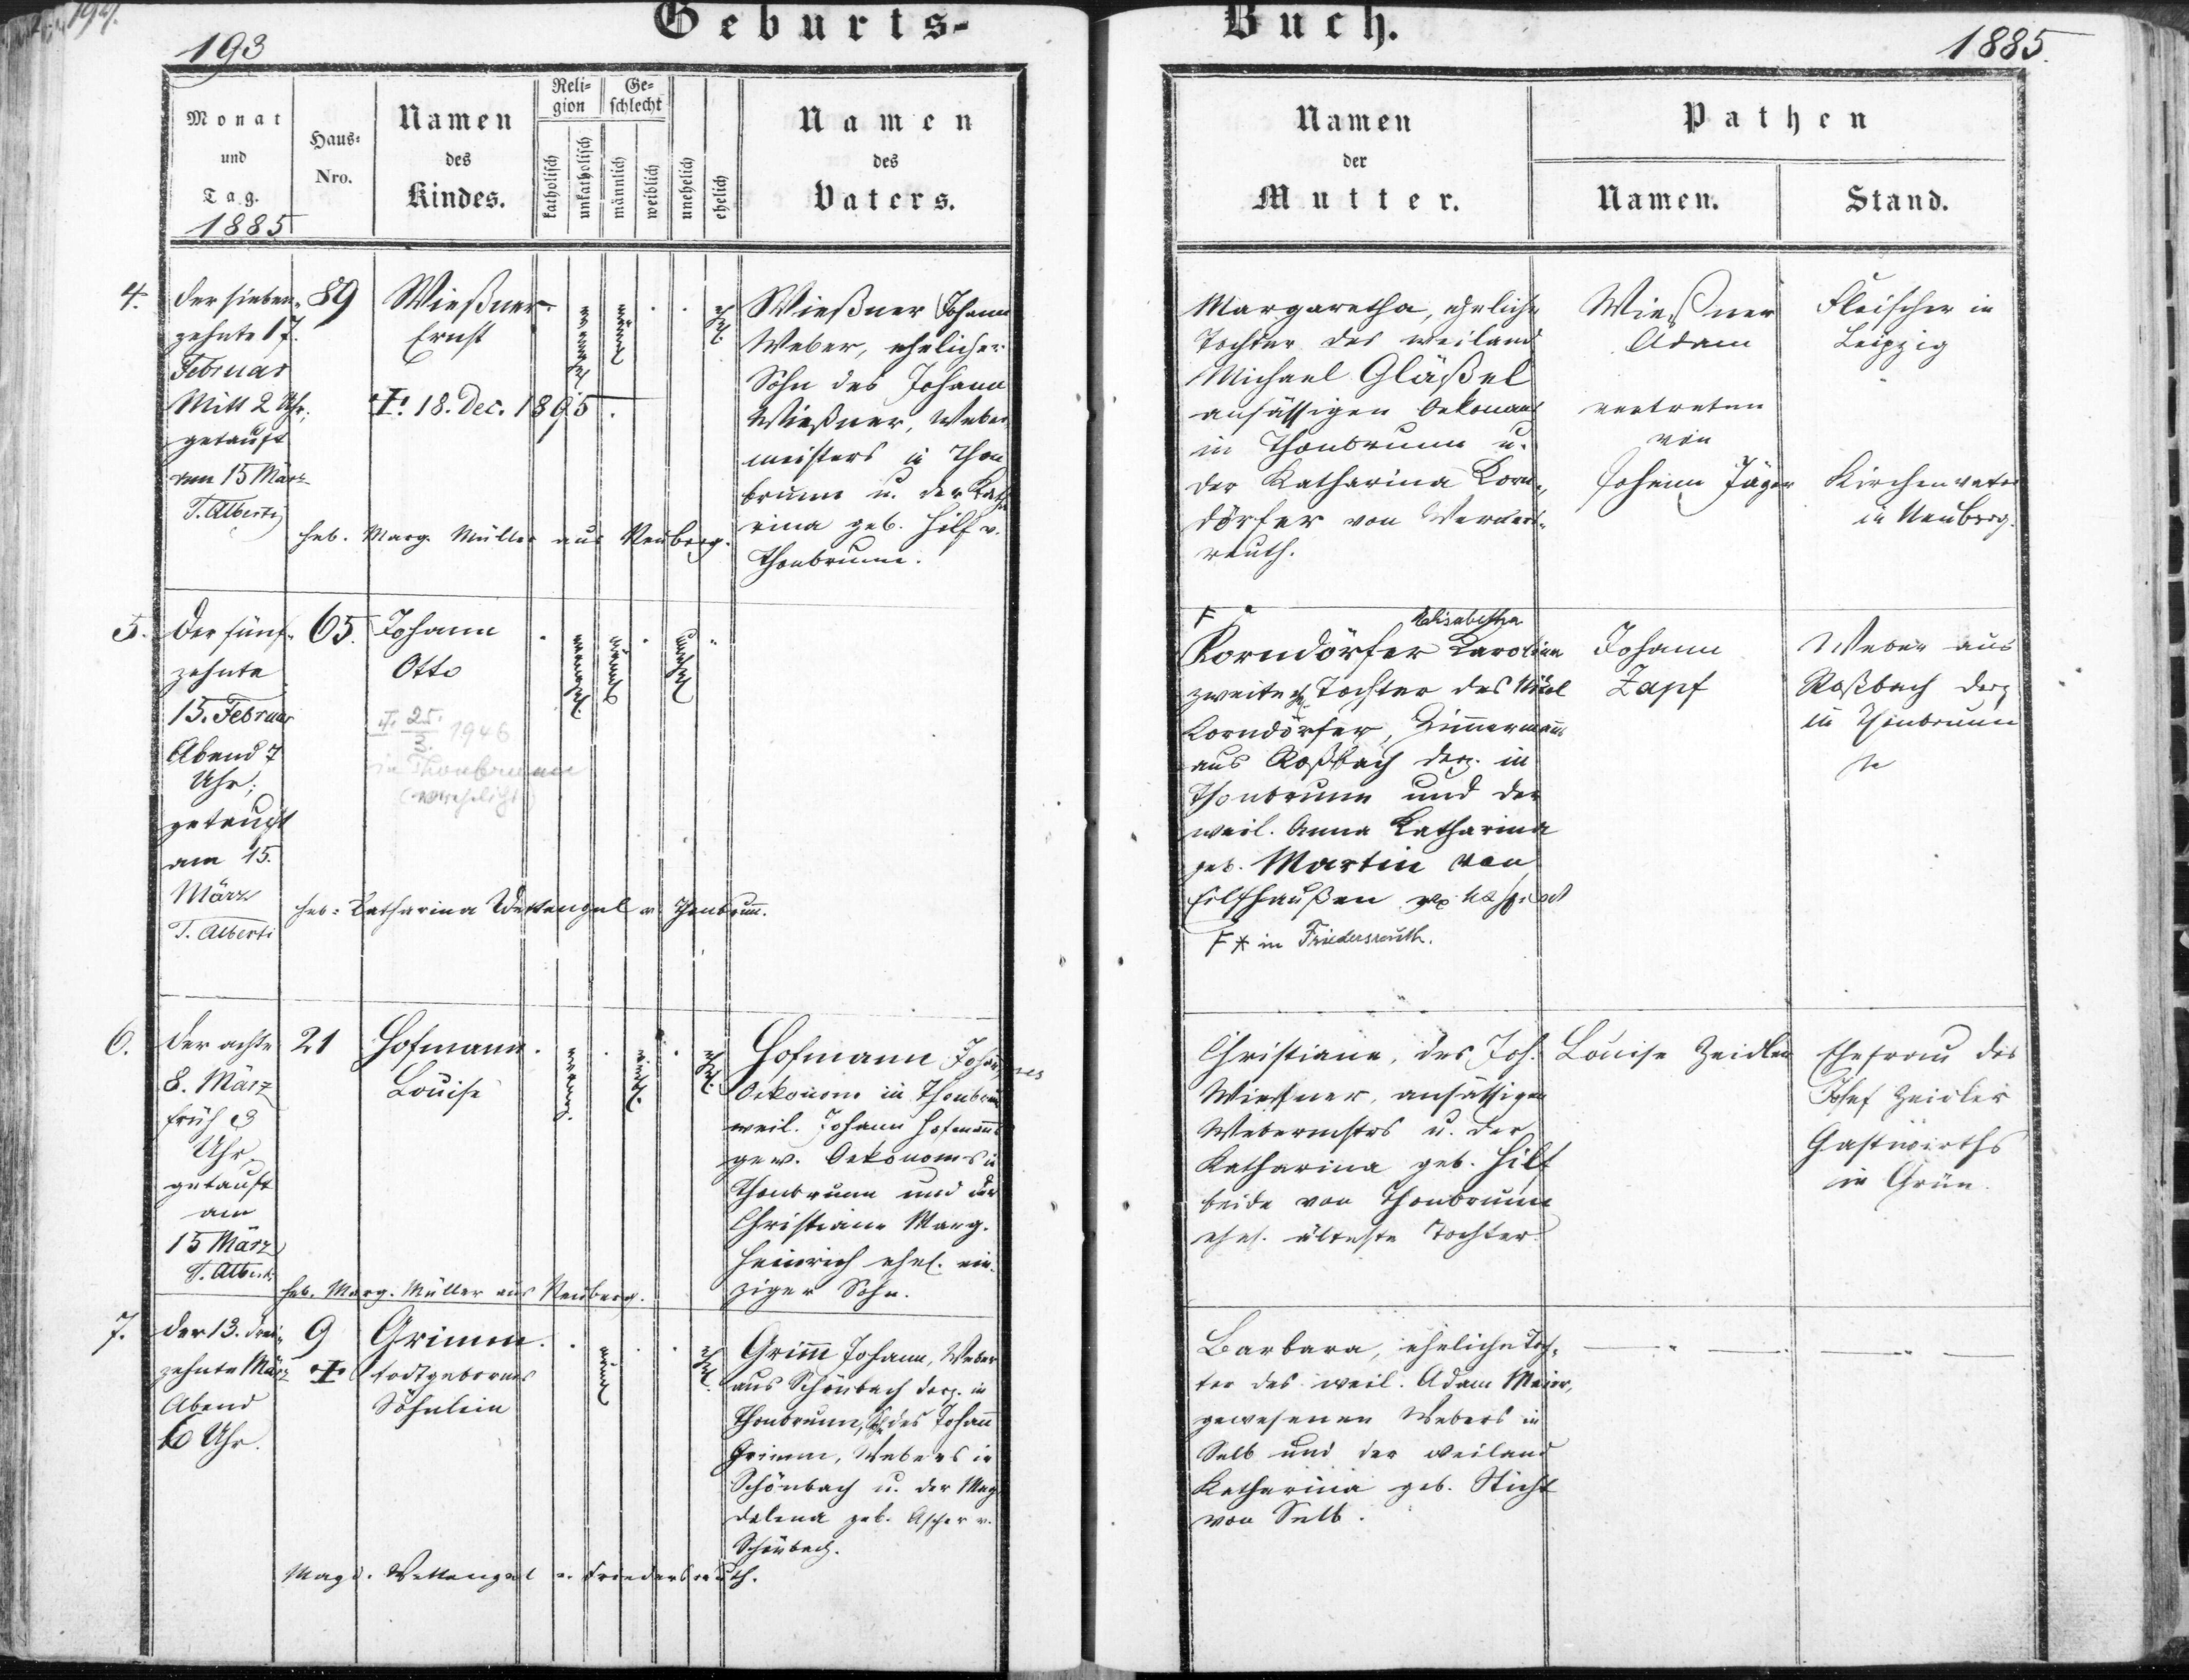 193
Geburts-
Monat
und
Tag.
1885
Haus-
Nro.
Namen
des
Kindes.
Reli-
gion
katholisch
unkatholisch
Ge-
schlecht
männlich
weiblich
unehelich
ehelich
Namen
des
Vaters.
4.
der sieben-
zehnte 17.
Februar
Mitt 2 Uhr;
getauft
am 15 März
T. Alberti
89
Wießner
Ernst
18. Dec. 1895.
Wießner Johann
Weber, ehelicher
Sohn des Johann
Wießner, Weber
meisters in Thon
brunn u. der Kath
rina geb. Hilf v.
Thonbrunn.
heb. Marg. Müller aus Neuberg.
5.
Der fünf-
zehnte
15. Februar
Abend 7
Uhr;
getauft
am 15.
März
T. Alberti
65.
Johann
Otto
25. 3. 1946
in Thonbrunn
(verehelicht)
heb. Katharina Wettengel v. Thonbrunn.
6.
der achte
8. März
früh 3
Uhr
getauft
am
15 März
T. Alberti
21
Hofmann
Louise
Hofmann Johannes
Oekonom in Thonbrunn
weil. Johann Hofmanns
gew. Oekonoms in
Thonbrunn und der
Christiane Marg.
Heinrich ehel. ein-
ziger Sohn.
heb. Marg. Müller aus Neuberg.
7.
der 13. drei-
zehnte März
Abend
6 Uhr.
9
Grimm
todtgebornes
Söhnlein
Grimm Johann, Weber
aus Schönbach derz. in
Thonbrunn, des Johann
Grimm, Webers in
Schönbach u. der Mag
dalena geb. Ascher v.
Schönbach.
Magd. Wettengel v. Friedersreuth.
Buch.
1885.
Namen
der
Mutter.
Pathen
Namen.
Stand.
Margaretha, eheliche
Tochter des weiland
Michael Gläßel
ansässigen Oekonom
in Thonbrunn u.
der Katharina Korn-
dörfer von Werners-
reuth.
Wießner
Adam
vertreten
von
Johann Jäger
Fleischer in
Leipzig
Kirchenvater
in Neuberg.
Elisabetha
Korndörfer Karoline
zweite Tochter des Nikol
Korndörfer, Zimmermanns
aus Roßbach derz. in
Thonbrunn und der
weil. Anna Katharina
geb. Martin von
* in Friedersreuth.
Johann
Zapf
Weber aus
Roßbach derz
in Thonbrunn
Christiane, des Joh.
Wießner, ansässigen
Webermstrs u. der
Katharina geb. Hilf
beide von Thonbrunn
ehel. älteste Tochter
Louise Zeidler
Ehefrau des
Josef Zeidler
Gastwirths
in Grün.
Barbara, eheliche Toch-
ter des weil. Adam Meier,
gewesenen Webers in
Selb und der weiland
Katharina geb. Sticht
von Selb.